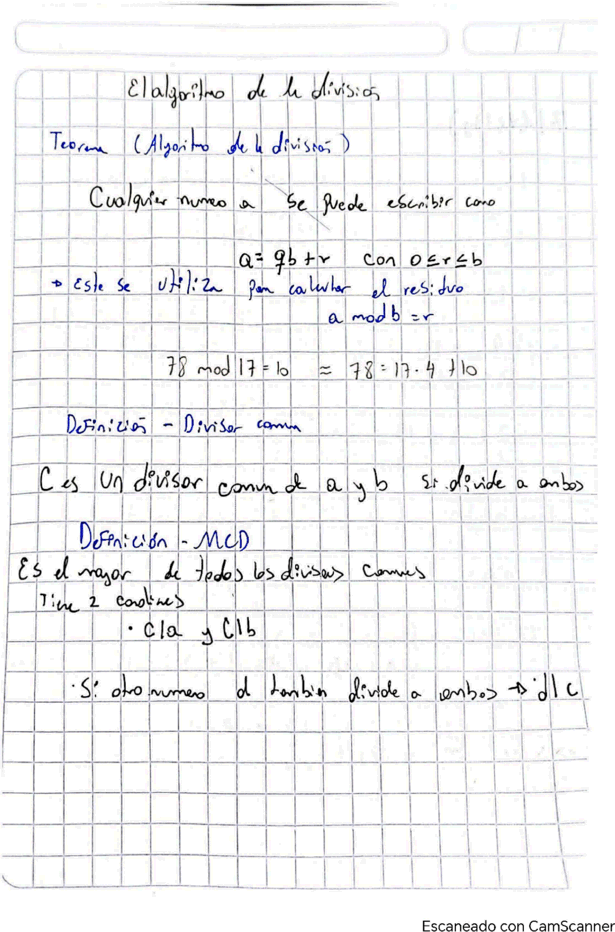 El algoritmo de la división
Teorema (Algoritmo de la división)
Cualquier numero a se puede escribir como
a = qb + r con 0 ≤ r ≤ b
→ Este se utiliza para calcular el residuo
a mod b = r
78 mod 17 = 10 ≈ 78 = 17 · 4 + 10
Definición - Divisor comun
C es un divisor comun de a y b si divide a ambos
Definición - MCD
Es el mayor de todos los divisores comunes
Tiene 2 condiciones
· C|a y C|b
· Si otro numero d tambien divide a ambos → d|c
Escaneado con CamScanner